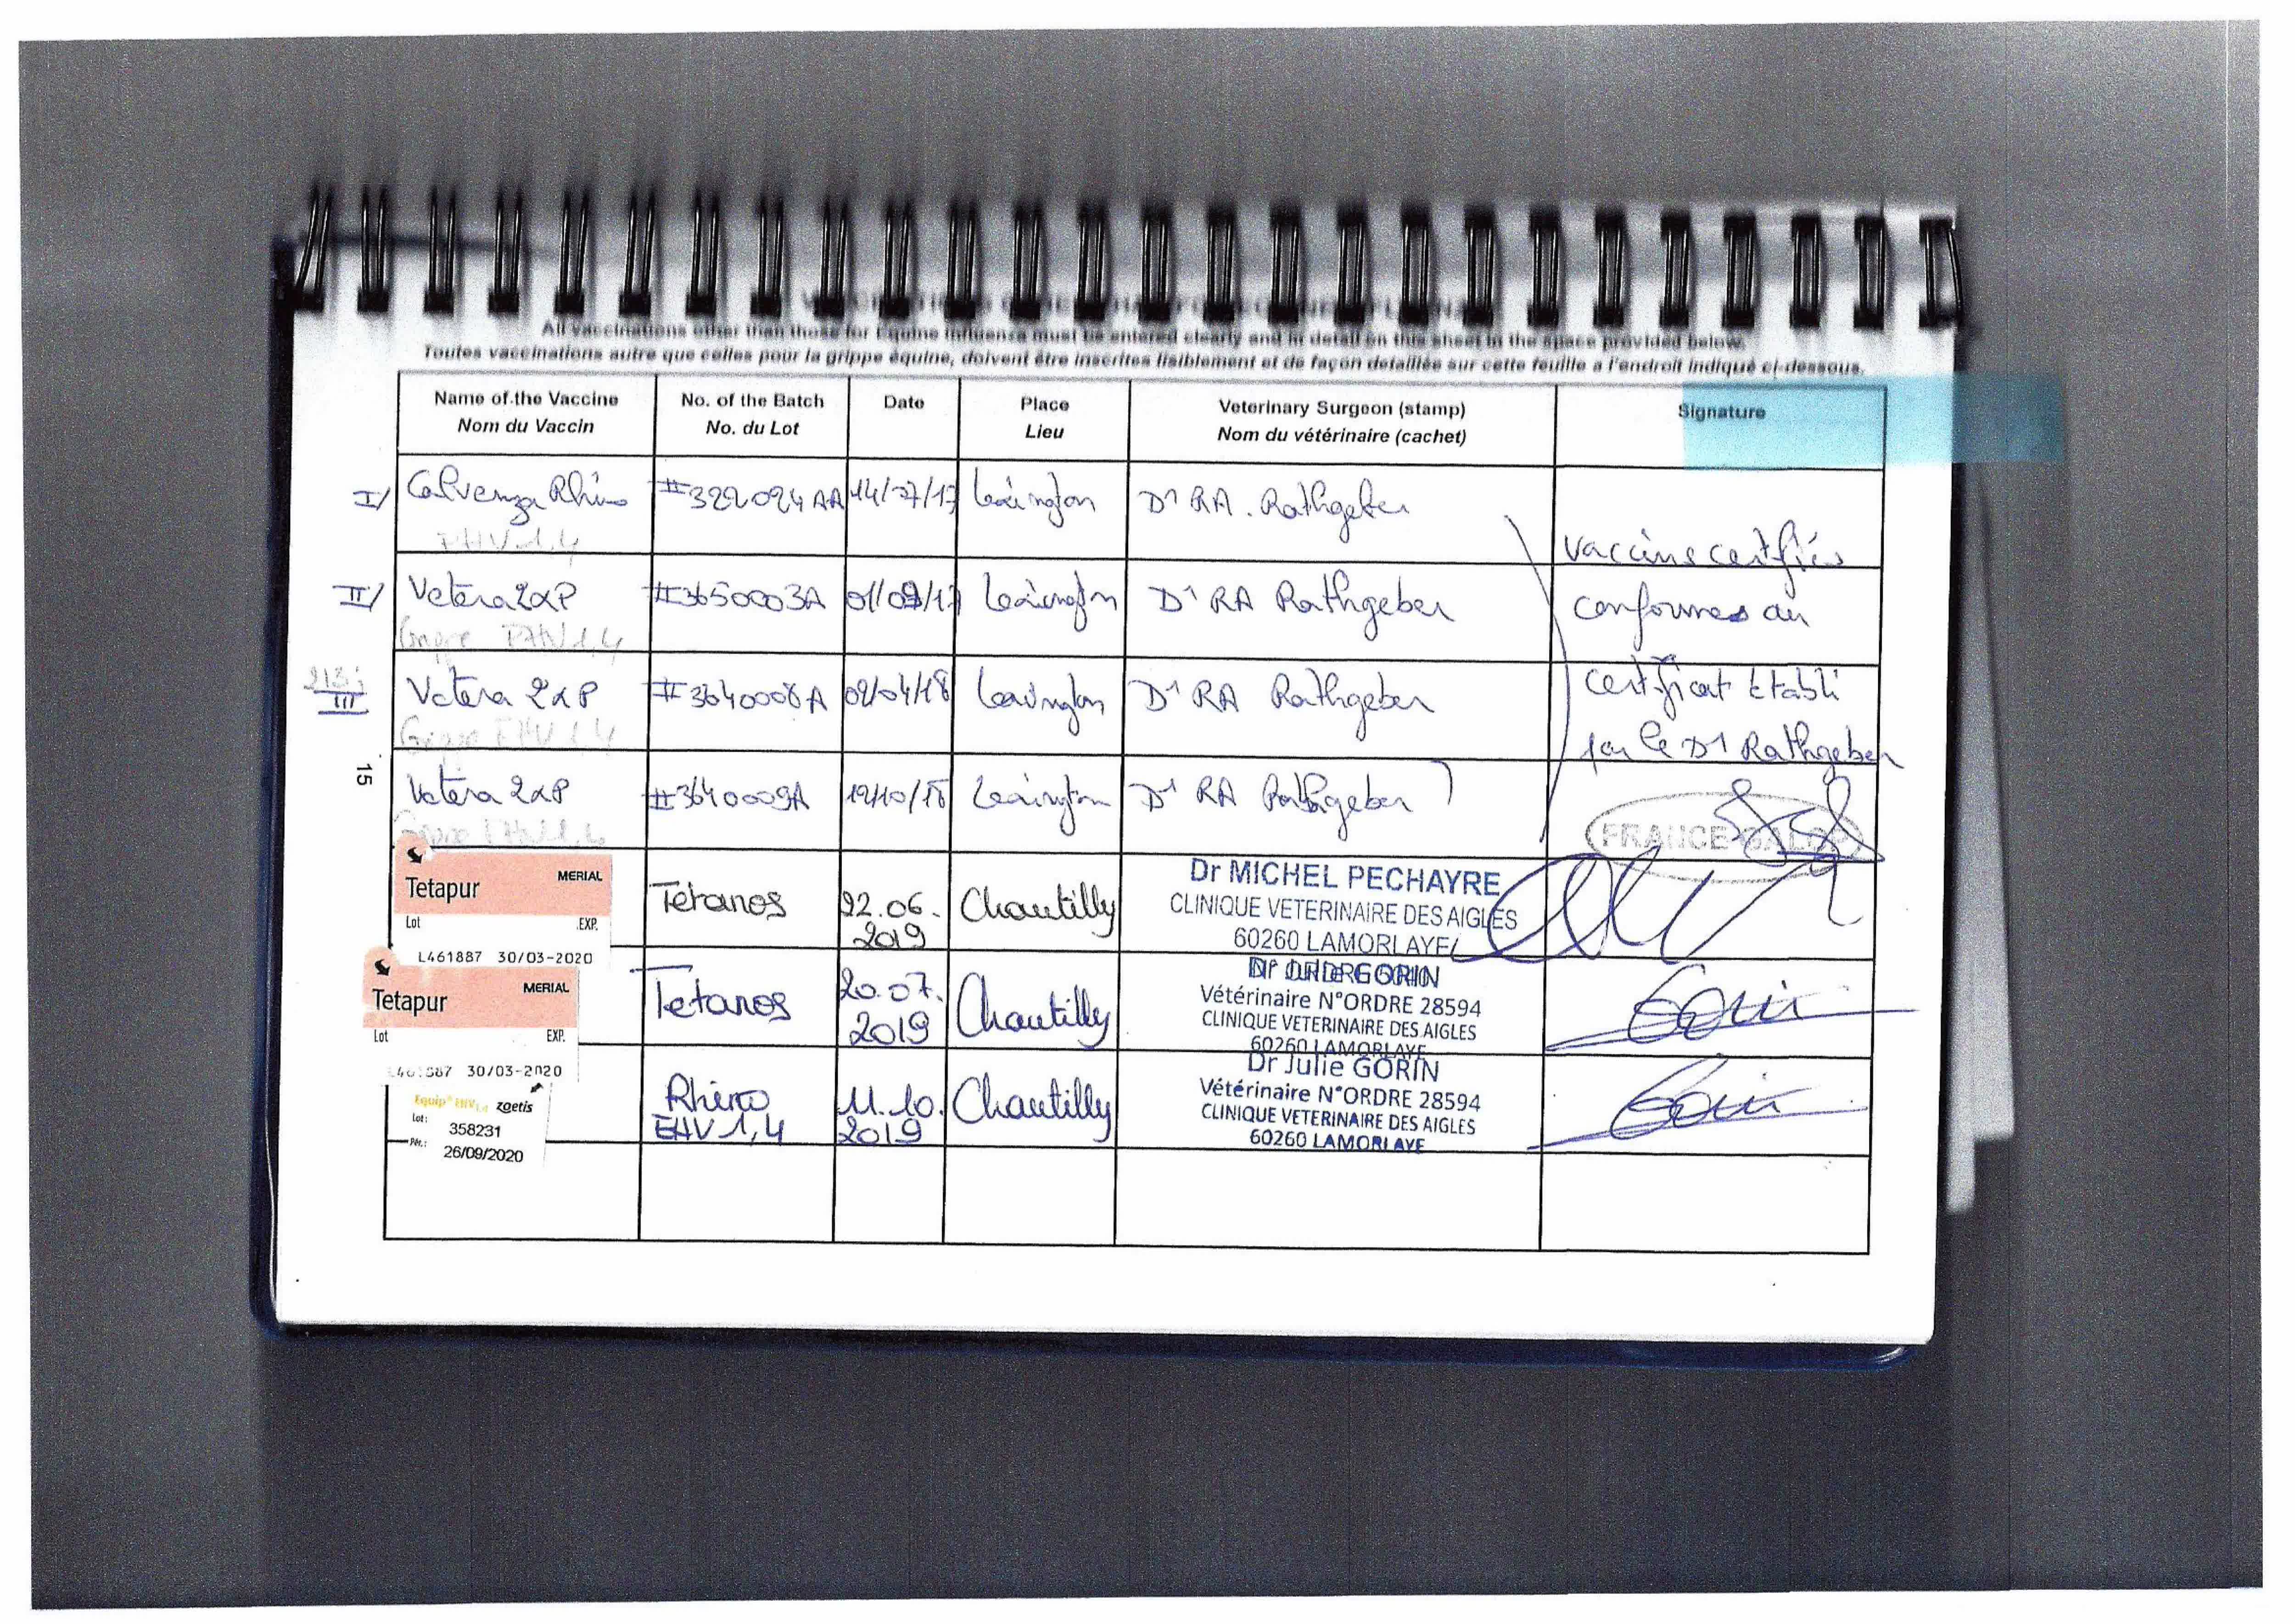 All vaccinations other than those for Equine Influenza must be entered clearly and in detail on this sheet in the space provided below.
Toutes vaccinations autre que celles pour la grippe équine, doivent être inscrites lisiblement et de façon detaillée sur cette feuille a l'endroit indiqué ci-dessous.
Name of the Vaccine No. of the Batch Date Place Veterinary Surgeon (stamp) Signature
Nom du Vaccin No. du Lot Lieu Nom du vétérinaire (cachet)
I/ Calvenza Rhino #322024AA 14/07/17 Lexington Dr RA. Rathgeber
EHV 1,4
vaccins certifiés
II/ Vetera 2xP #3650003A 01/09/17 Lexington Dr RA Rathgeber conformes au
Grippe EHV 1,4
213j
III Vetera 2xP 02/04/18 Lexington Dr RA Rathgeber certificat établi
Grippe EHV 1,4
par le Dr Rathgeber
15
Vetera 2xP #3640009A Lexington Dr RA Rathgeber
Grippe EHV 1,4
FRANCE GALOP
Tetapur MERIAL
Lot EXP.
L461887 30/03-2020
Tétanos 22.06.
2019 Chantilly
Dr MICHEL PECHAYRE
CLINIQUE VETERINAIRE DES AIGLES
60260 LAMORLAYE
Tetapur MERIAL
Lot EXP.
30/03-2020
Tetanos 20.07.
2019 Chantilly
GORIN
Vétérinaire N°ORDRE 28594
CLINIQUE VETERINAIRE DES AIGLES
60260 LAMORLAYE
Gorin
Equip® EHV1,4 zoetis
Lot:
358231
Pér.:
26/09/2020
Rhino
EHV 1,4
11.10.
2019
Chantilly
Dr Julie GORIN
Vétérinaire N°ORDRE 28594
CLINIQUE VETERINAIRE DES AIGLES
60260 LAMORLAYE
Gorin